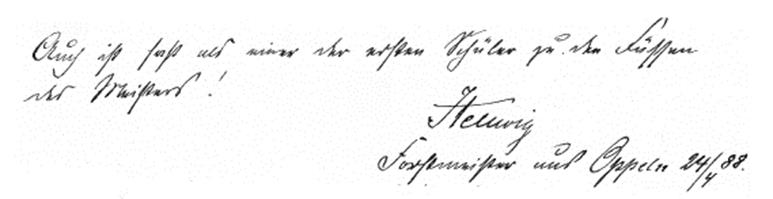 Auch ich saß als einer der ersten Schüler zu den Füssen
des Meisters!
Hellwig
Forstmeister aus Oppeln 24/4 88.